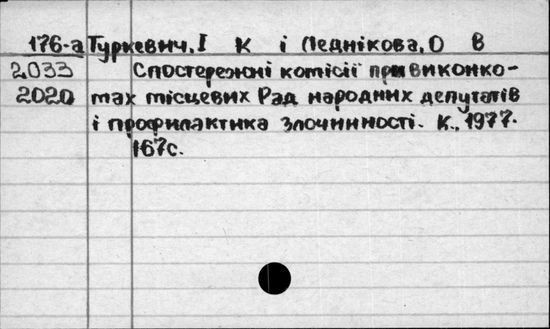 176-а Туркевич, І К і Леднікова, О В
2033 Спостережні комісії при виконко-
2020 мах місцевих Рад народних депутатів
і профилактика злочинності. К., 1977.
167с.